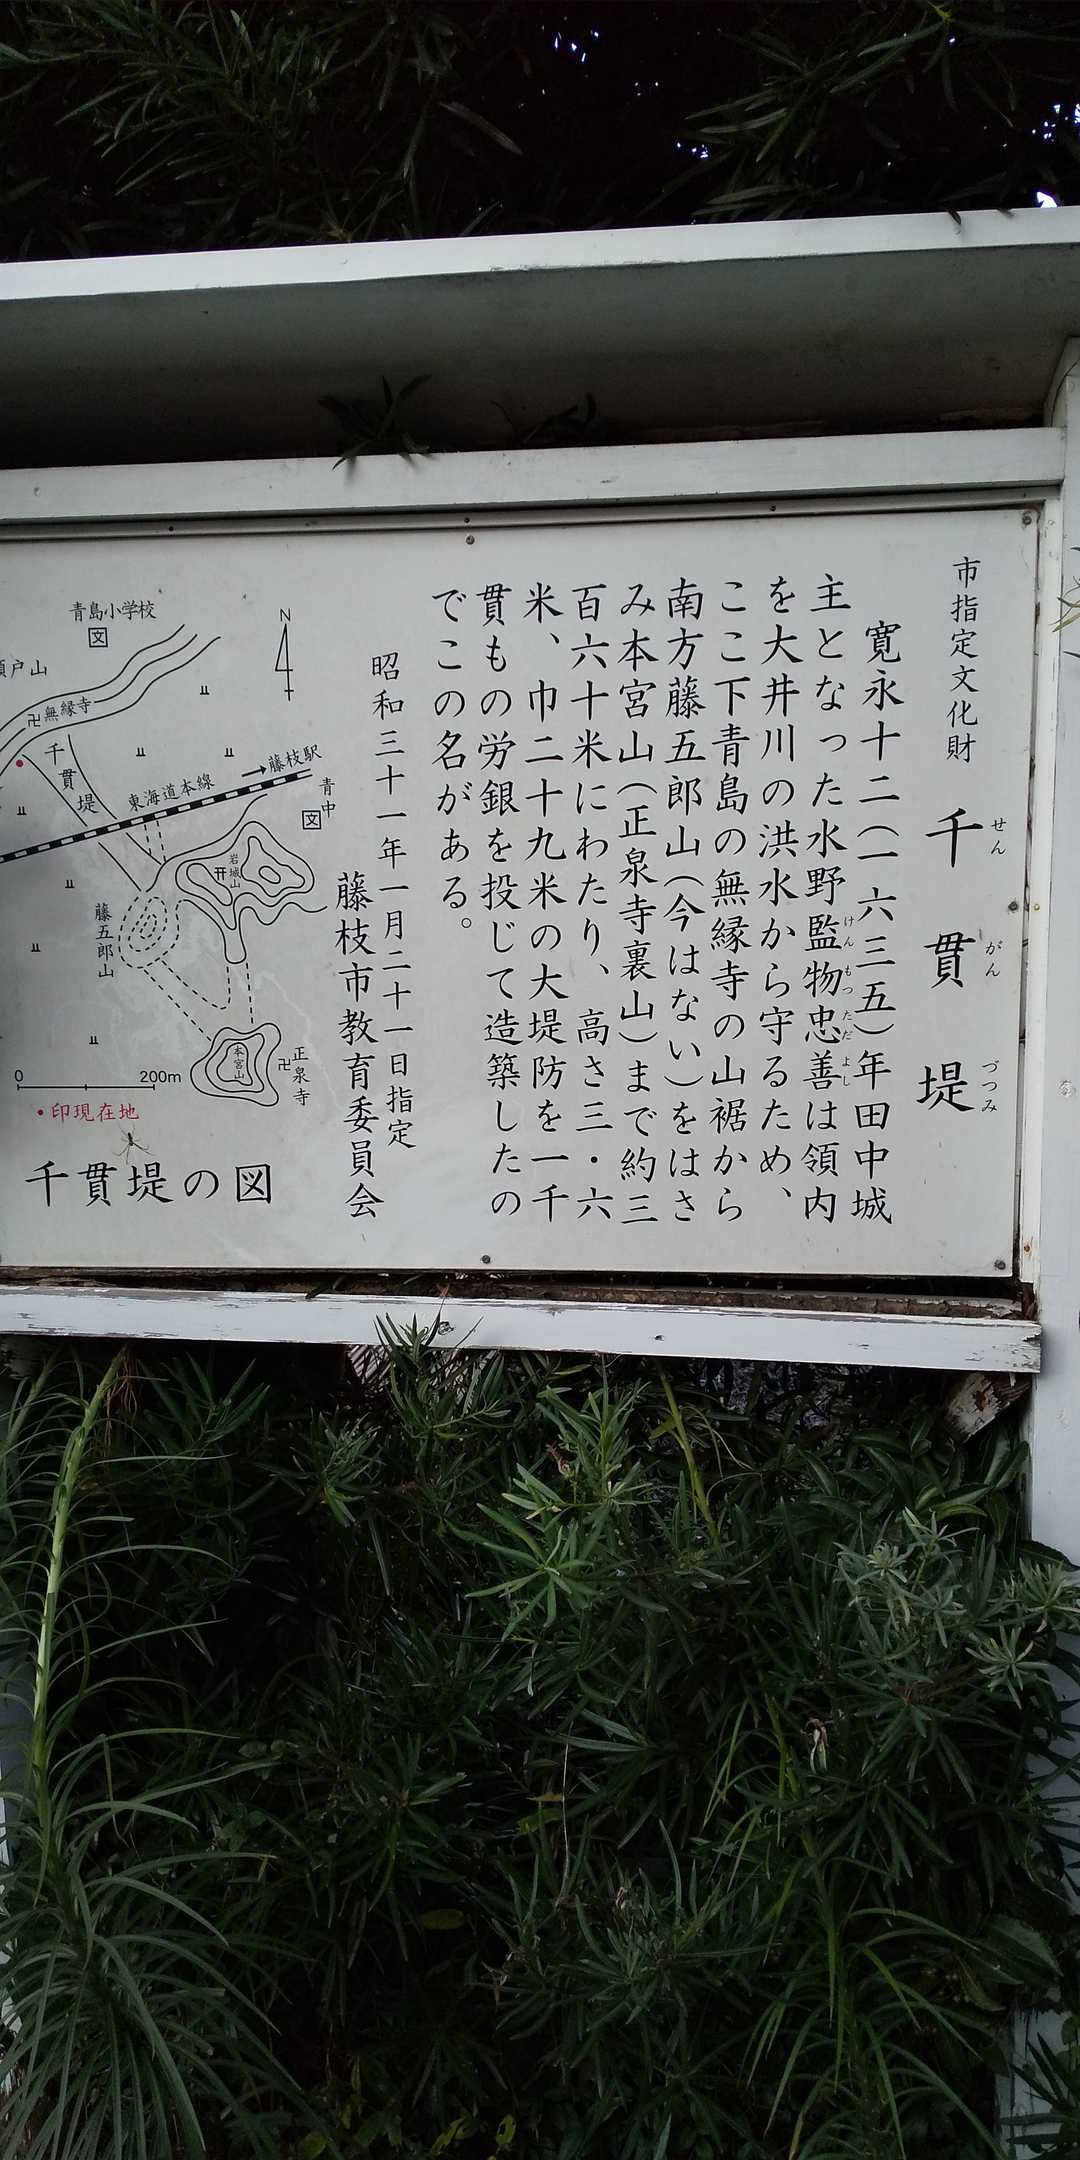 市指定文化財
千貫堤
せんがんづつみ
寛永十二(一六三五)年田中城
主となった水野監物忠善は領内
けんもつただよし
を大井川の洪水から守るため、
ここ下青島の無縁寺の山裾から
南方藤五郎山(今はない)をはさ
み本宮山(正泉寺裏山)まで約三
百六十米にわたり、高さ三・六
米、巾二十九米の大堤防を一千
貫もの労銀を投じて造築したの
でこの名がある。
昭和三十一年一月二十一日指定
藤枝市教育委員会
青島小学校
文
戸山
卍無縁寺
千貫堤
東海道本線
→藤枝駅
青中
文
岩城山
藤五郎山
本宮山
卍正泉寺
N
0
200m
•印現在地
千貫堤の図